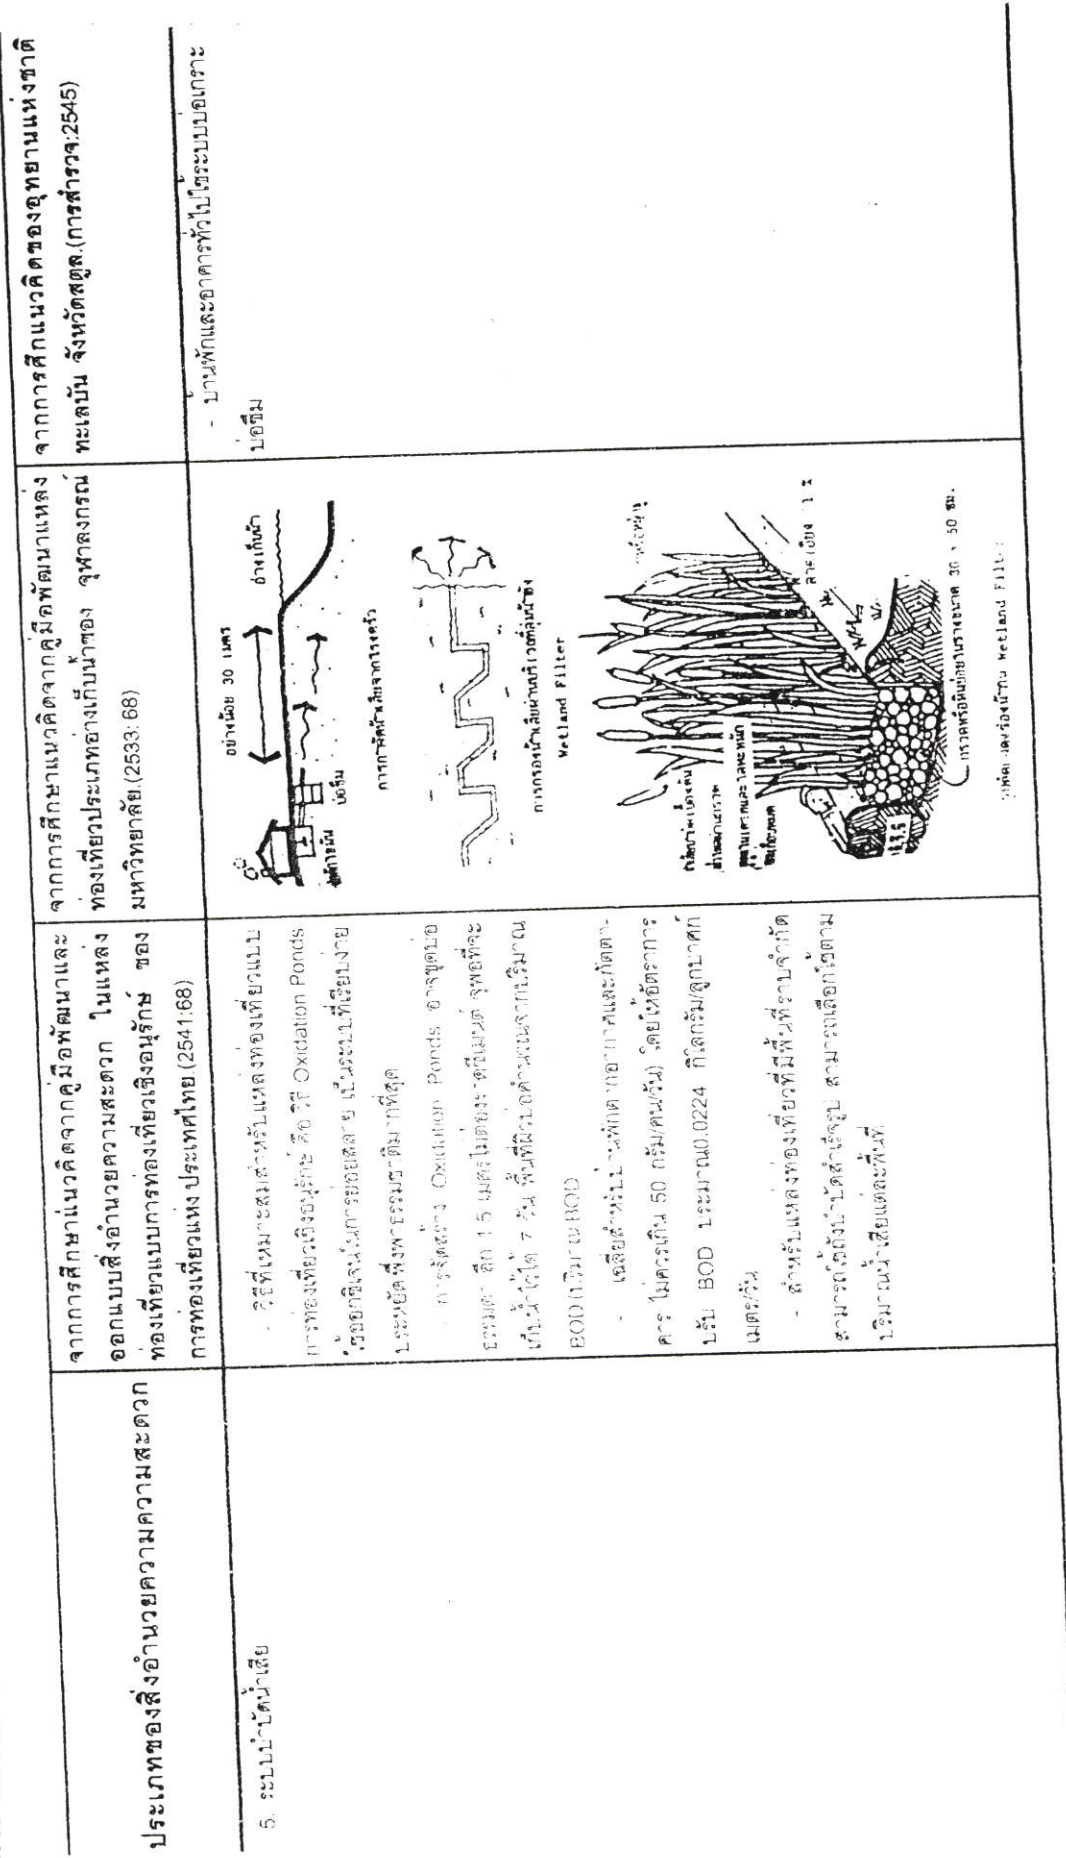 ประเภทของสิ่งอำนวยความความสะดวก
จากการศึกษาแนวคิดจากคู่มือพัฒนาและ
ออกแบบสิ่งอำนวยความสะดวก ในแหล่ง
ท่องเที่ยวแบบการท่องเที่ยวเชิงอนุรักษ์ ของ
การท่องเที่ยวแห่ง ประเทศไทย (2541:68)
จากการศึกษาแนวคิดจากคู่มือพัฒนาแหล่ง
ท่องเที่ยวประเภทอ่างเก็บน้ำของ จุฬาลงกรณ์
มหาวิทยาลัย.(2533:68)
จากการศึกแนวคิดของอุทยานแห่งชาติ
ทะเลบัน จังหวัดสตูล.(การสำรวจ:2545)
5. ระบบบำบัดน้ำเสีย
- วิธีที่เหมาะสมสำหรับแหล่งท่องเที่ยวแบบ
การท่องเที่ยวเชิงอนุรักษ์ คือ วิธี Oxidation Ponds
ใช้ออกซิเจนในการย่อยสลาย เป็นระบบที่เรียบง่าย
ประหยัด พึ่งพาธรรมชาติมากที่สุด
- การจัดสร้าง Oxidation Ponds อาจขุดบ่อ
ธรรมดา ลึก 1.5 เมตร จุพอที่จะ
เก็บน้ำไว้ได้ 7 วัน พื้นที่ผิวบ่อคำนวณจากปริมาณ
BOD (ปริมาณ BOD
- เฉลี่ยสำหรับบ้านพักตากอากาศและภัตตา-
คาร ไม่ควรเกิน 50 กรัม/คน/วัน) โดยให้อัตราการ
ปรับ BOD ประมาณ0.0224 กิโลกรัม/ลูกบาศก์
เมตร/วัน
- สำหรับแหล่งท่องเที่ยวที่มีพื้นที่ราบจำกัด
สามารถใช้ถังบำบัดสำเร็จรูป สามารถเลือกใช้ตาม
ปริมาณน้ำเสียแต่ละพื้นที่
อย่างน้อย 30 เมตร
อ่างเก็บน้ำ
บ่อซึม
การกำจัดน้ำเสียจากโรงครัว
การกรองน้ำเสียผ่านบริเวณที่ลุ่มน้ำขัง
Wetland Filter
ลาดเอียง 1 %
กรวดหรือหินหยาบรางขนาด 30 x 50 ซม.
Wetland Filter
- บ้านพักและอาคารทั่วไปใช้ระบบบ่อเกราะ
บ่อซึม